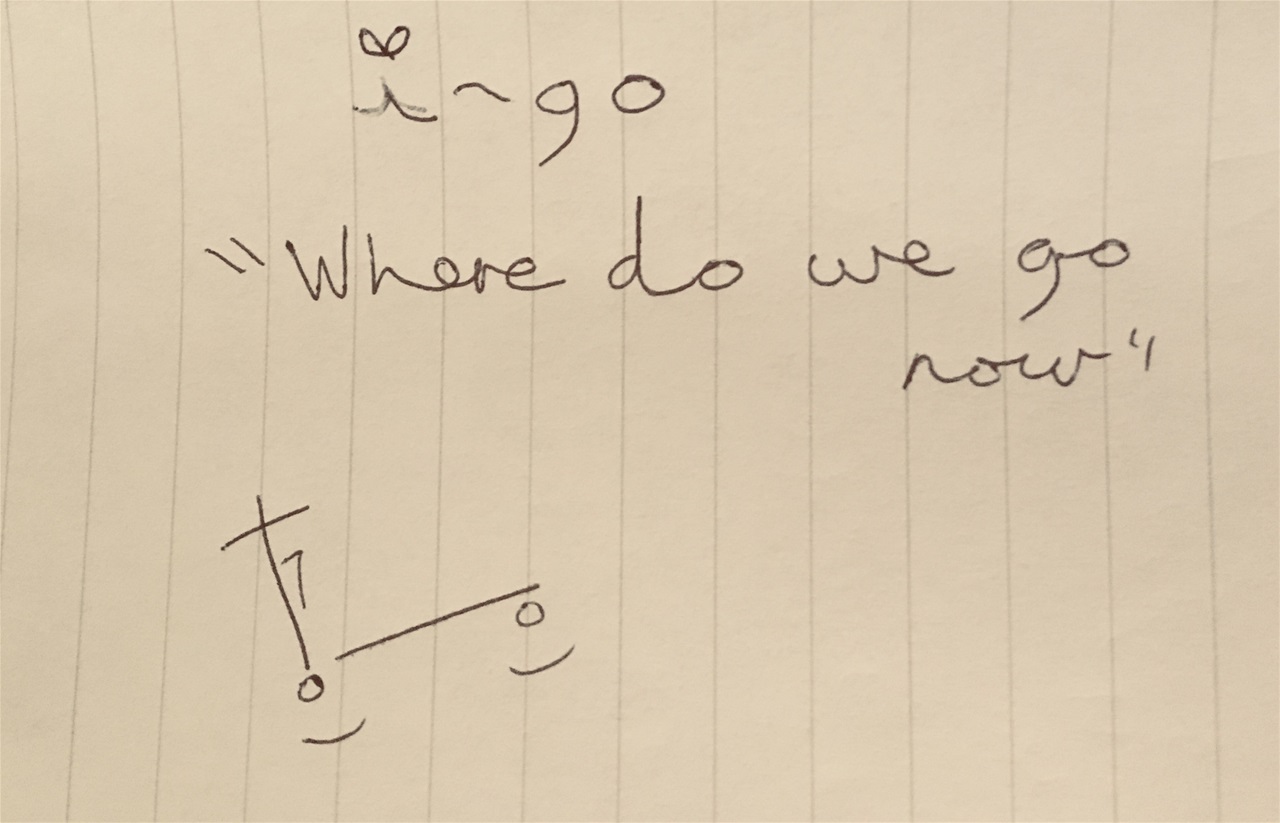 i~go
"Where do we go
now"
1